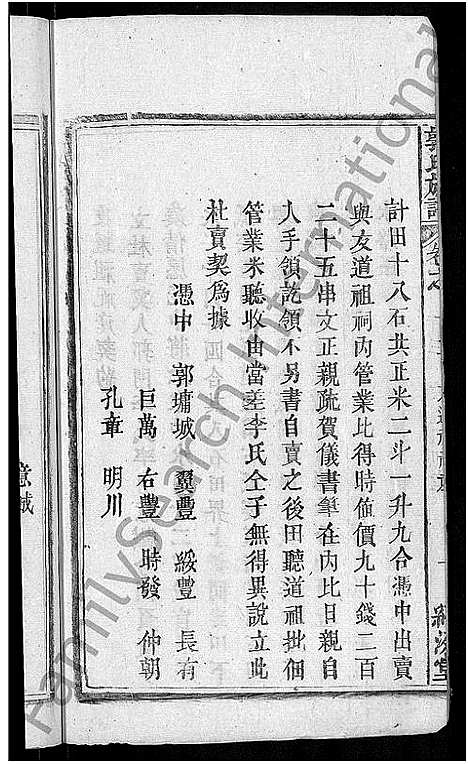 計田十八石共正米二斗一升九合憑中出賣
與友道祖祠內管業比得時値價九十錢二百
二十五串文正親疏賀儀書筆在內比日親自
人手領訖領不另書自賣之後田聽道祖批佃
管業米聽收由當差李氏仝子無得異說立此
杜賣契爲據
憑中 郭墉城 翼豐 綏豐 長有
巨萬 右豐 時發 仲朝
孔章 明川
郭氏族譜
FamilySearch International